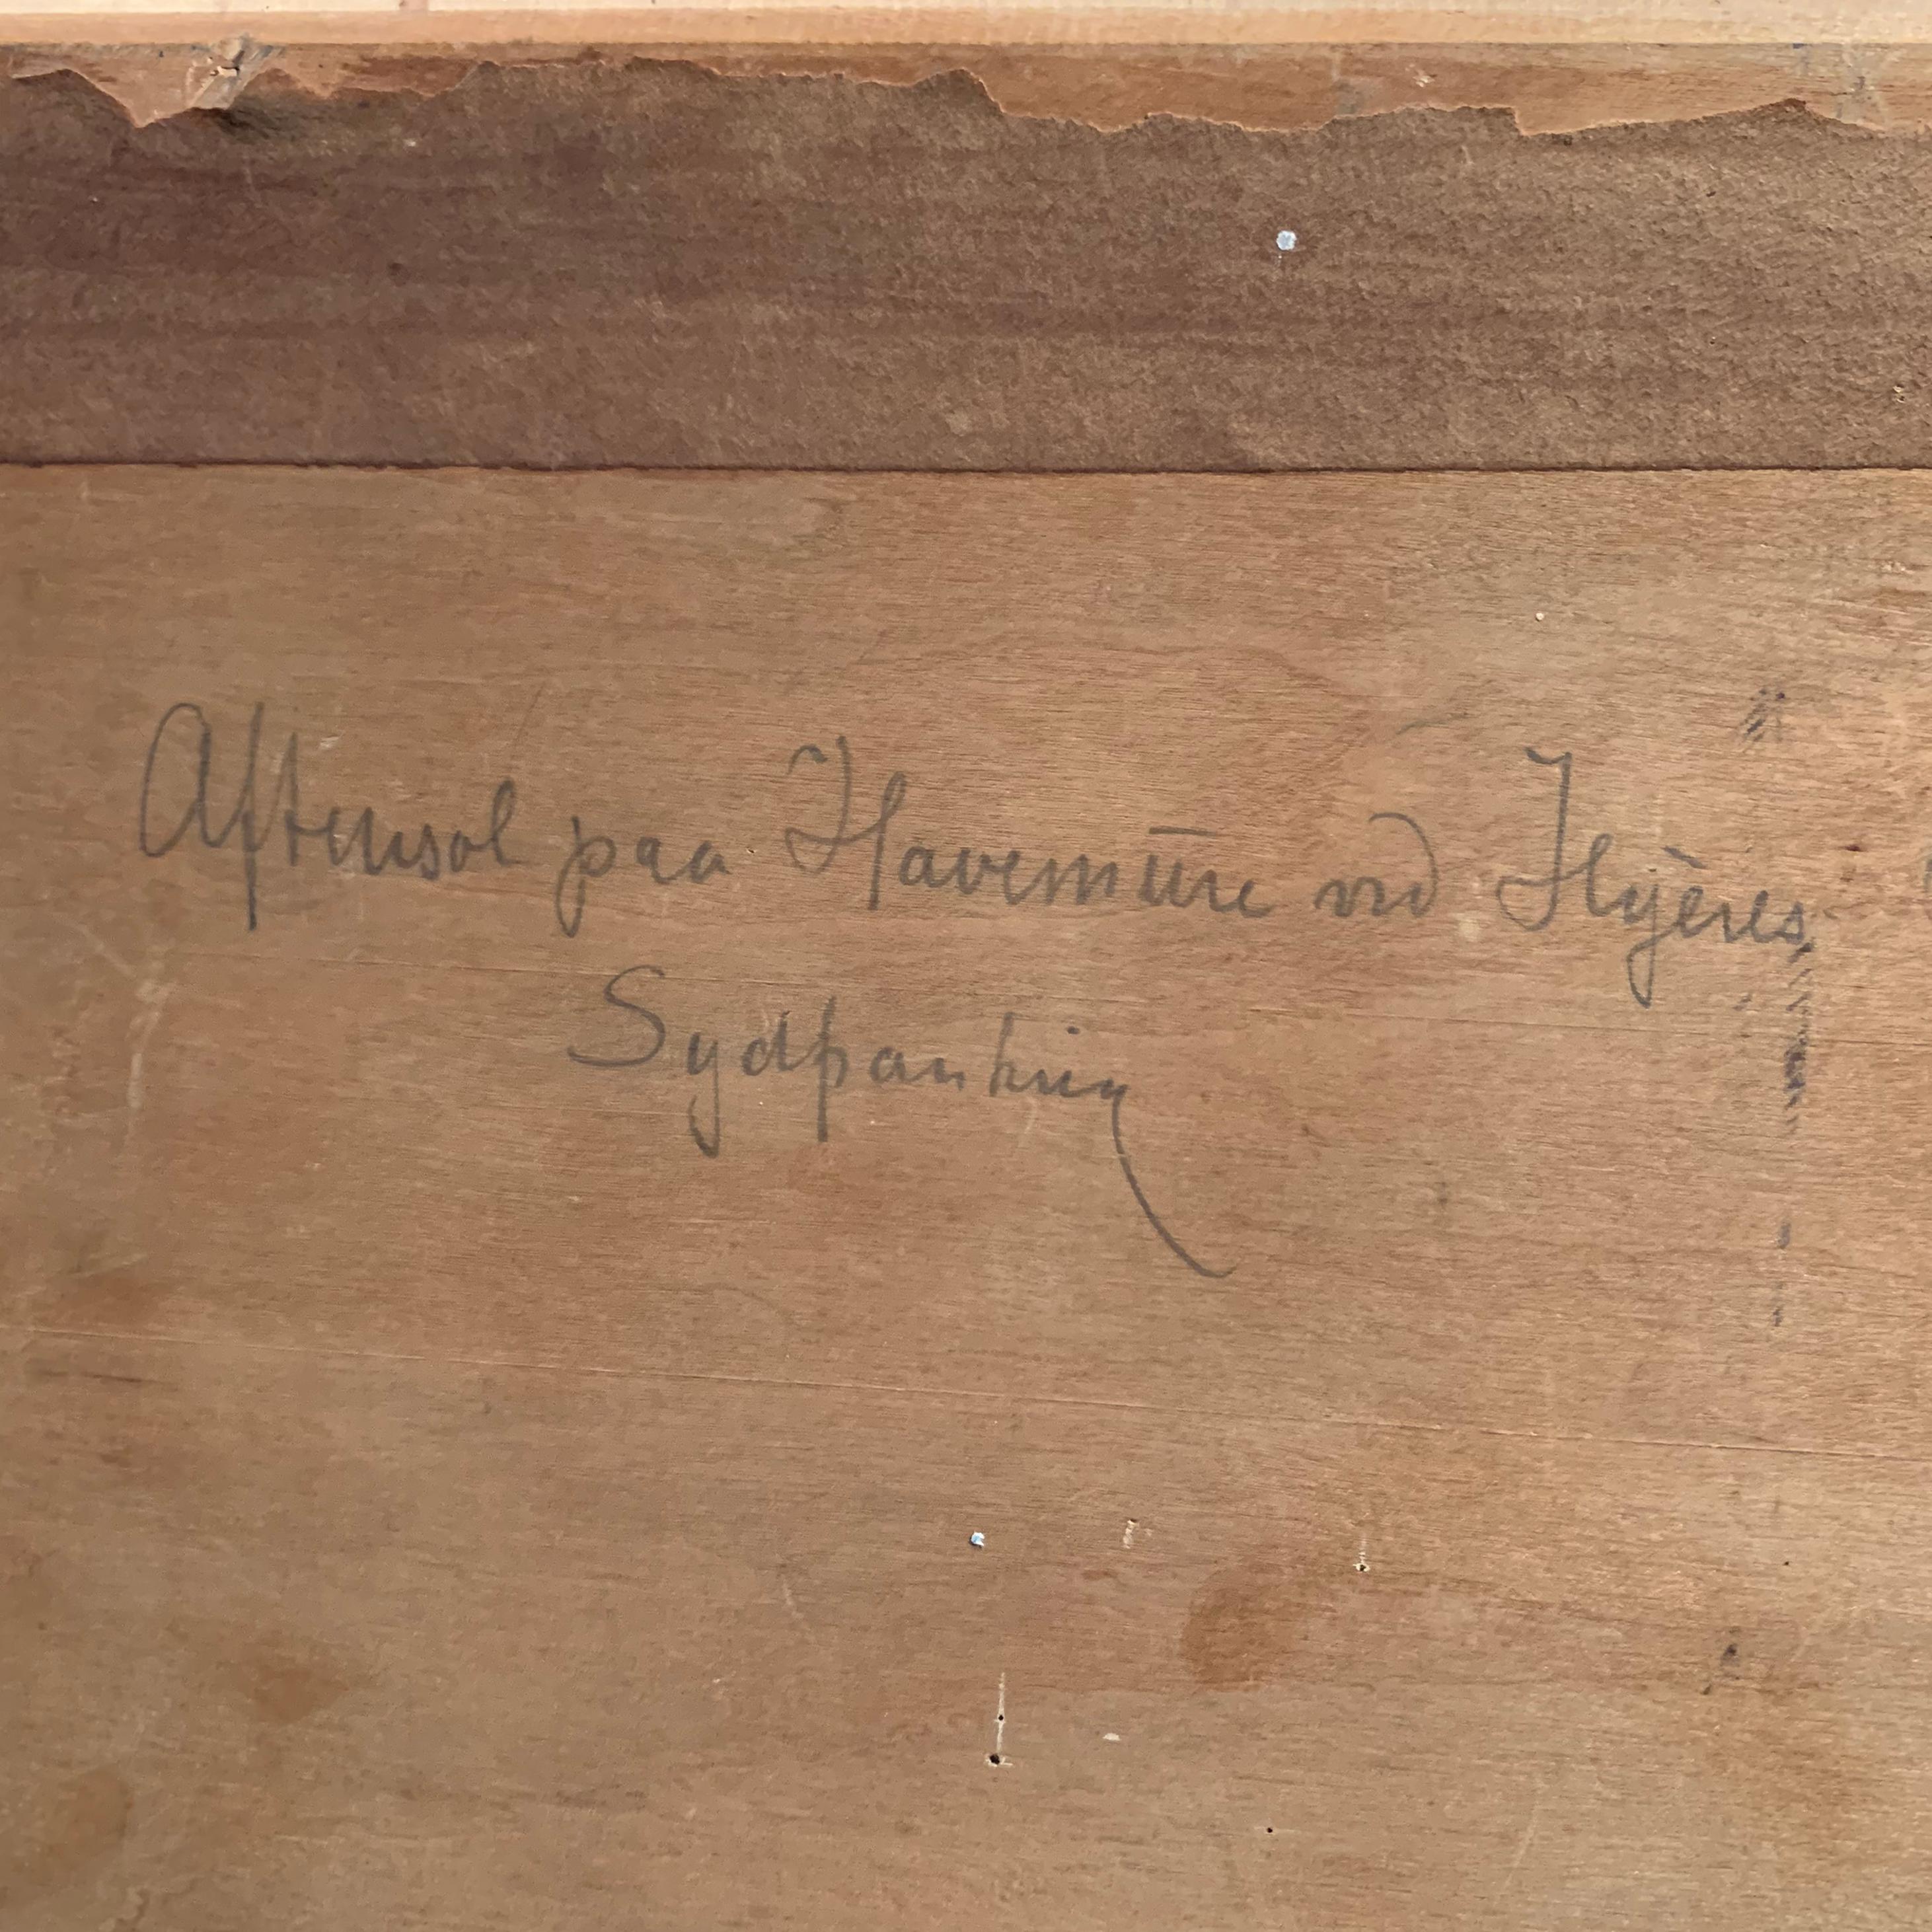 Aftensol paa Havemure ved Hyères,
Sydfrankrig